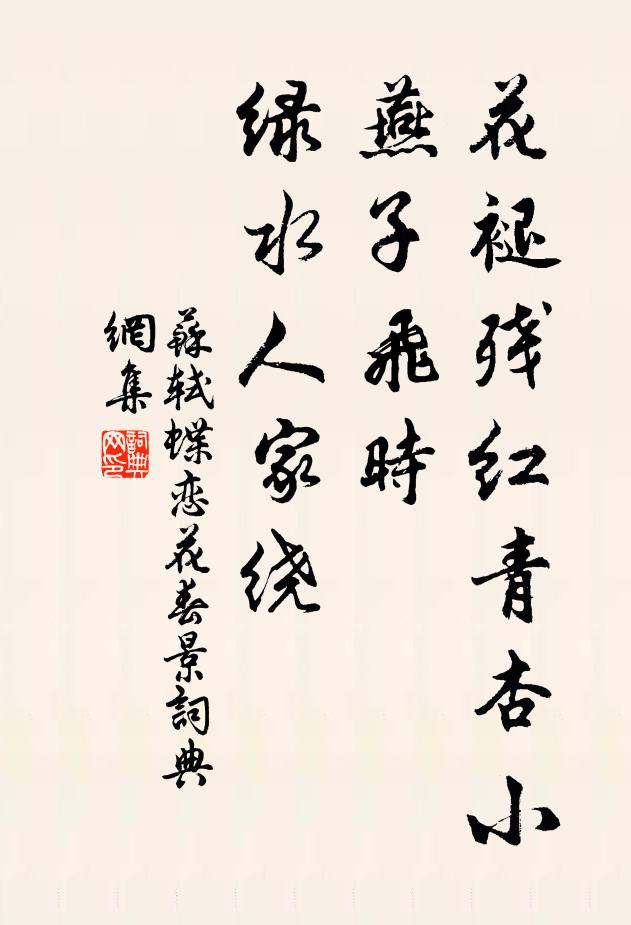 花褪残红青杏小
燕子飛時
绿水人家绕
蘇轼蝶恋花春景詞典
網集
詞典
网印